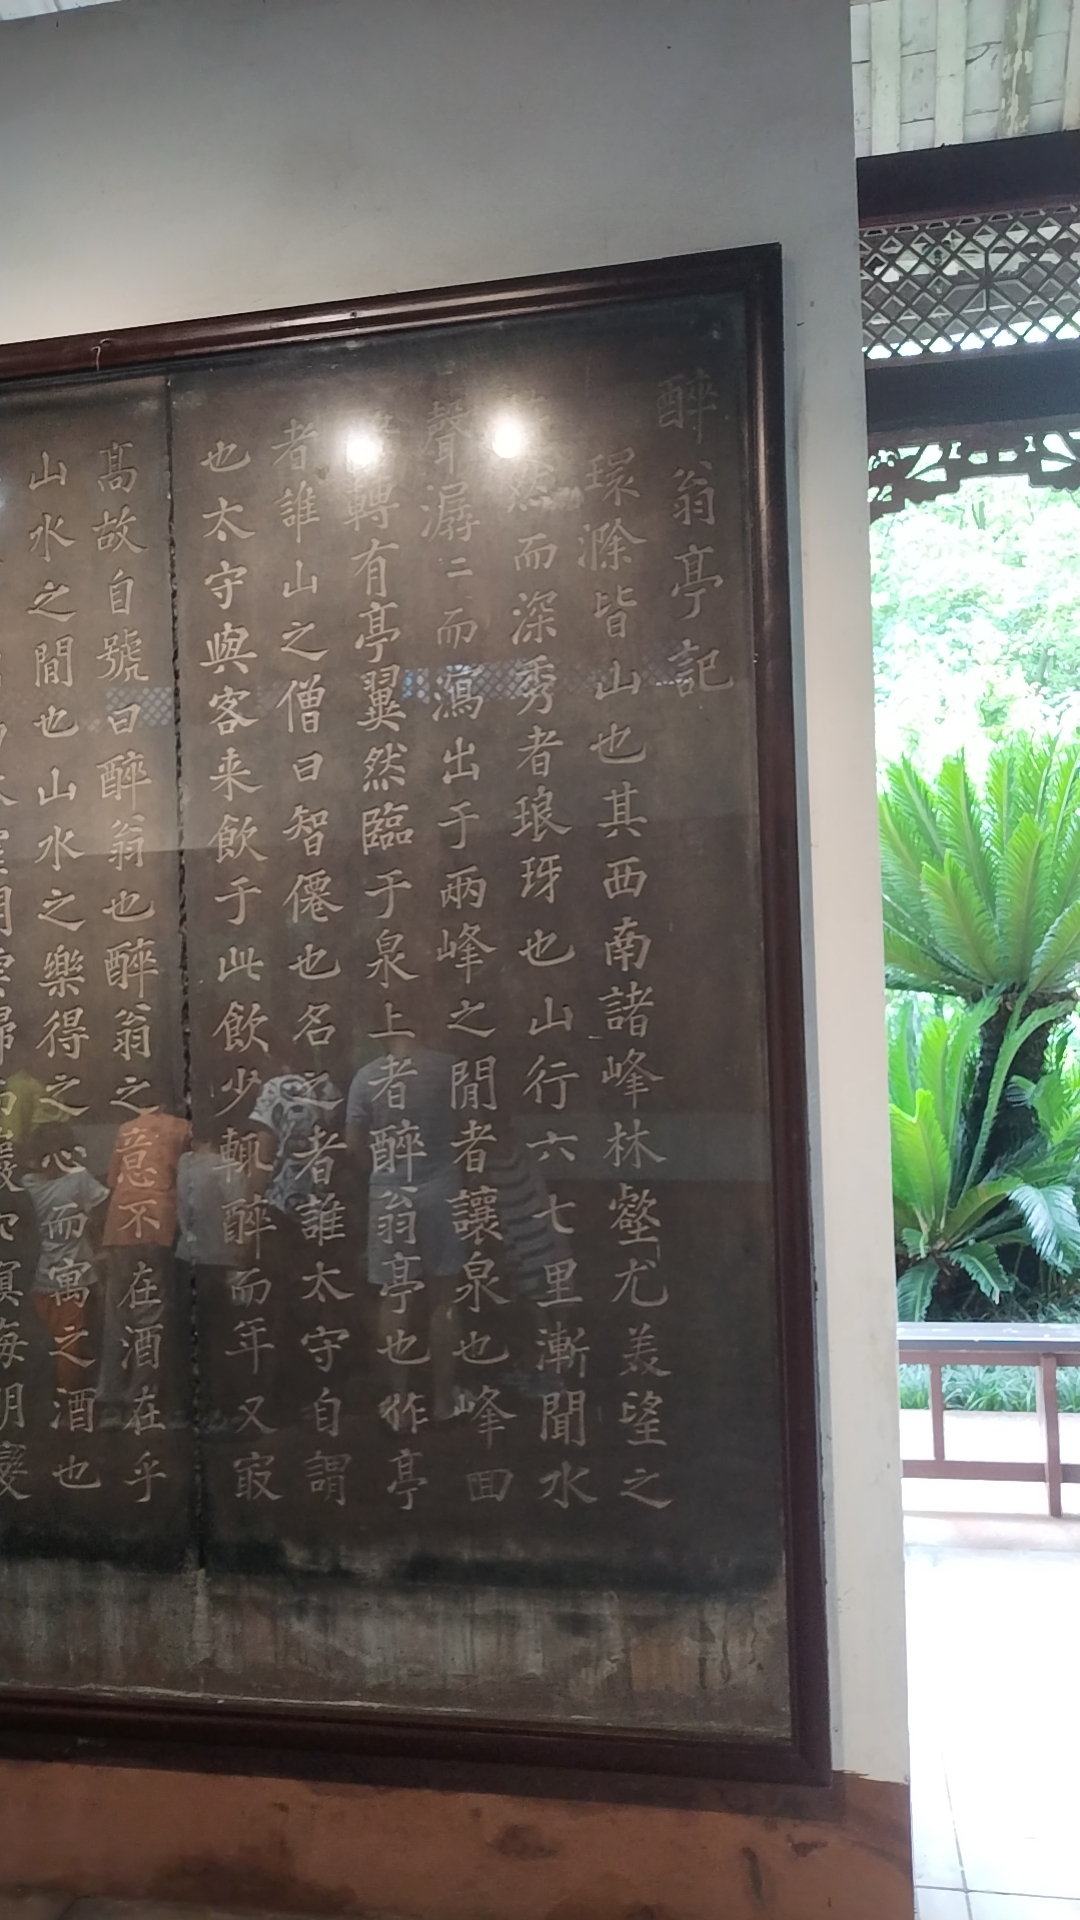 醉翁亭記
環滁皆山也其西南諸峰林壑尤美望之
然而深秀者琅玡也山行六七里漸聞水
聲潺二而瀉出于兩峰之閒者讓泉也峰回
轉有亭翼然臨于泉上者醉翁亭也作亭
者誰山之僧曰智僊也名之者誰太守自謂
也太守與客来飲于此飲少輒醉而年又㝡
髙故自號曰醉翁也醉翁之意不在酒在乎
山水之閒也山水之樂得之心而寓之酒也